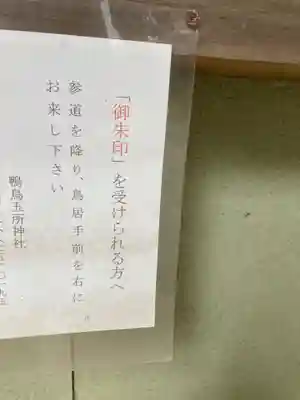 「御朱印」を受けられる方へ
参道を降り、鳥居手前を右に
お来し下さい
鴨鳥五所神社